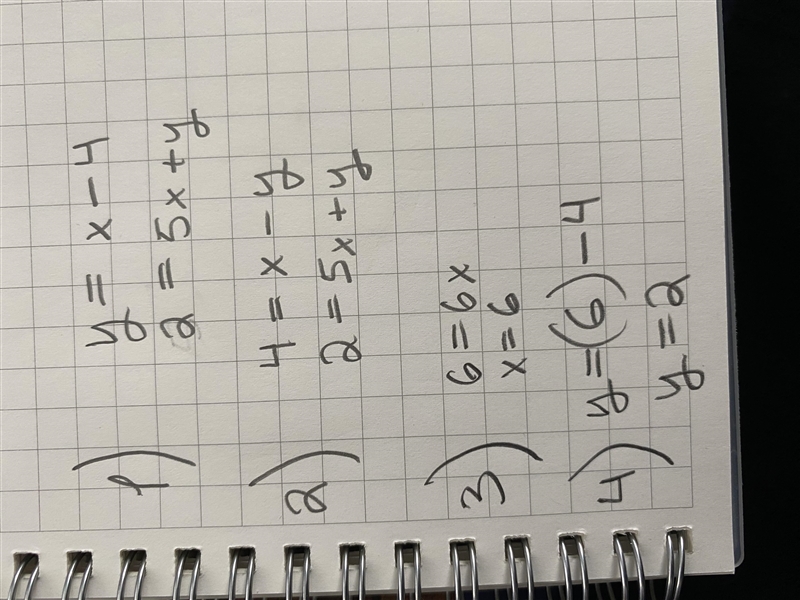 1) y = x - 4
2 = 5x + y
2) 4 = x - y
2 = 5x + y
3) 6 = 6x
x = 6
4) y = (6) - 4
y = 2